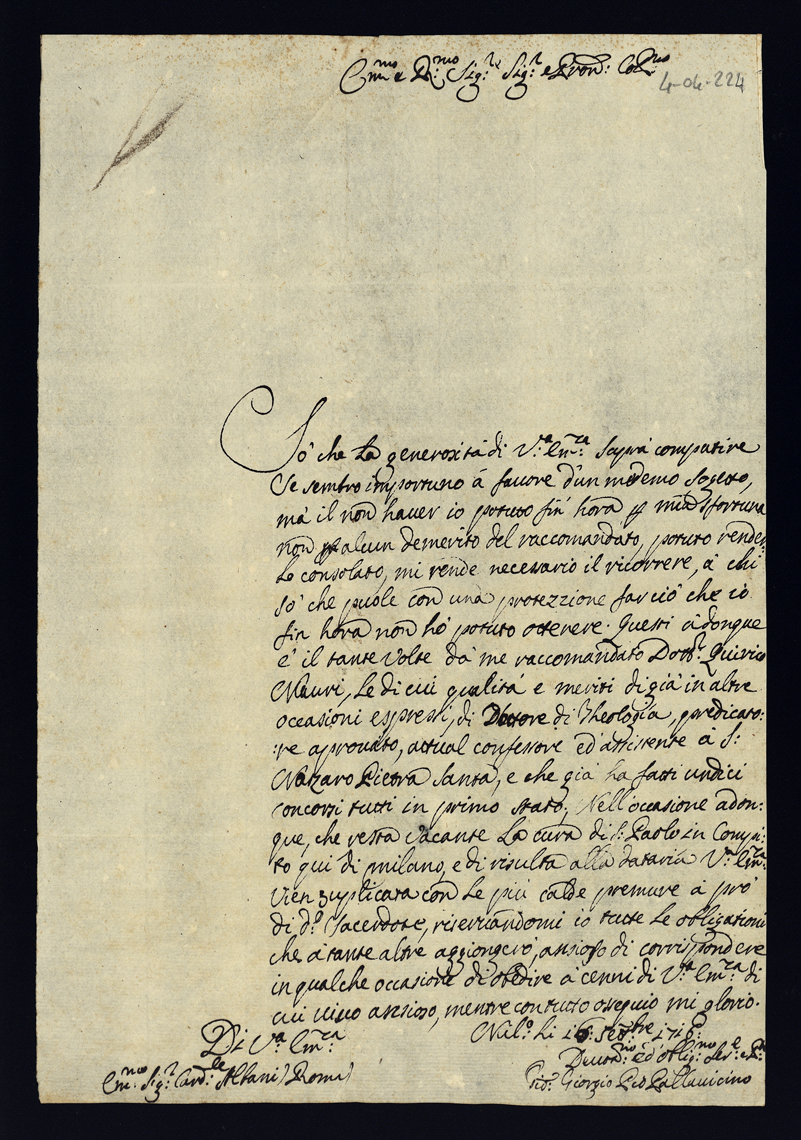 Em.mo e R.mo Sig.r Sig.r e Pron: Col.mo
4-04-224
Sò che la generosità di V.a Em.za saprà compatire
se sembro importuno à favore d'un medemo sogetto,
mà il non haver io potuto fin' hora p mia sfortuna
non p alcun demerito del raccomandato, potuto render
lo consolato, mi rende necessario il ricorrere, à chi
sò che puole con una protezzione far ciò che io
fin hora non hò potuto ottenere. Questi adonque
è il tante volte dà me raccomandato Dott.r Quirico
Mauri, le di cui qualità e meriti di già in altre
occasioni espressi, di Dottore di Theologia, predicato:
:re aprovato, attual confessore ed assistente à S:
Nazaro Pietra Santa, e che già hà fatti undici
concorsi tutti in primo stato; Nell'occasione adon:
que, che resta vacante la cura di S: Paolo in Compi:
to qui di Milano, e di risulta alla dataria V.a Em.za
vien suplicata con le più calde premure à prò
di d.o Sacerdote, riservandomi io tutte le obligationi
che à tante altre aggiongerò, ansioso di corrispondere
in qualche occasione di obedire à cenni di V.a Em.za di
cui vivo ansioso, mentre con tutto ossequio mi glorio.
Di V.a Em.za
Mil.o li 16 Sett.bre 1716
Em.mo Sig.r Card.le Albani / Roma /
Devot.mo ed oblig.mo Ser.e
Gio: Giorgio Pallavicino